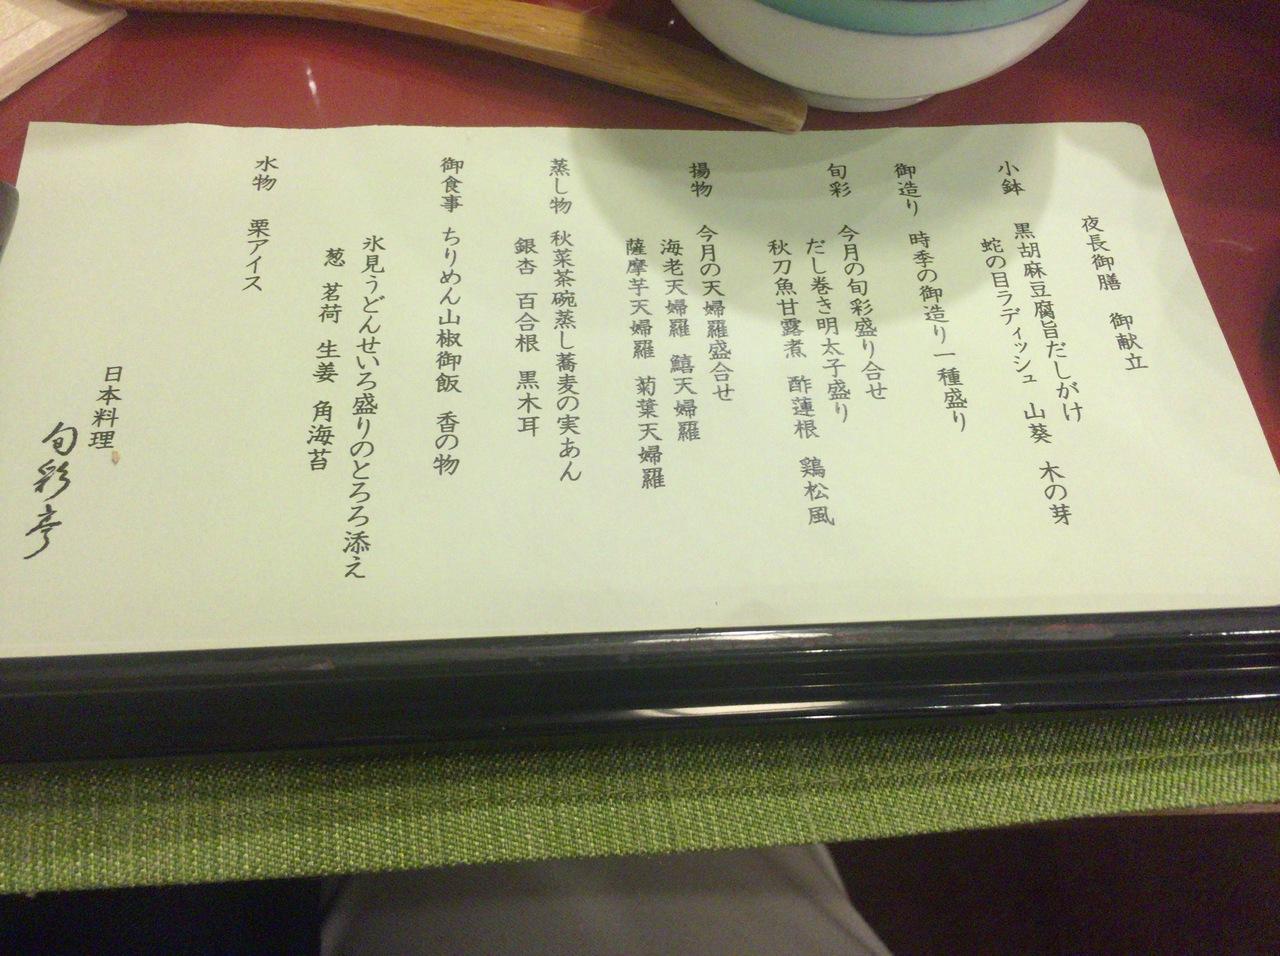 夜長御膳　御献立
小鉢　黒胡麻豆腐旨だしがけ
蛇の目ラディッシュ　山葵　木の芽
御造り　時季の御造り一種盛り
旬彩　今月の旬彩盛り合せ
だし巻き明太子盛り
秋刀魚甘露煮　酢蓮根　鶏松風
揚物　今月の天婦羅盛合せ
海老天婦羅　鱚天婦羅
薩摩芋天婦羅　菊葉天婦羅
蒸し物　秋菜茶碗蒸し蕎麦の実あん
銀杏　百合根　黒木耳
御食事　ちりめん山椒御飯　香の物
氷見うどんせいろ盛りのとろろ添え
葱　茗荷　生姜　角海苔
水物　栗アイス
日本料理
旬彩亭